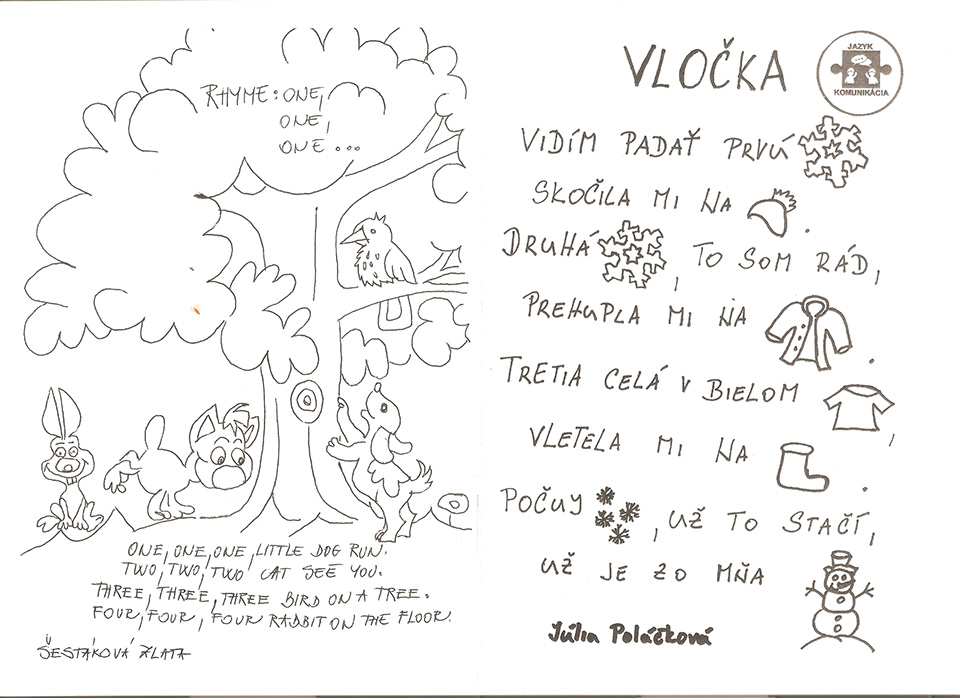 RHYME: ONE,
ONE,
ONE...
ONE, ONE, ONE, LITTLE DOG RUN.
TWO, TWO, TWO CAT SEE YOU.
THREE, THREE, THREE BIRD ON A TREE.
FOUR, FOUR, FOUR RABBIT ON THE FLOOR.
ŠESTÁKOVÁ ZLATA
VLOČKA
JAZYK
KOMUNIKÁCIA
VIDÍM PADAŤ PRVÚ
SKOČILA MI NA .
DRUHÁ , TO SOM RÁD,
PREHUPLA MI NA .
TRETIA CELÁ V BIELOM ,
VLETELA MI NA .
POČUY , UŽ TO STAČÍ,
UŽ JE ZO MŇA
Júlia Poláčková